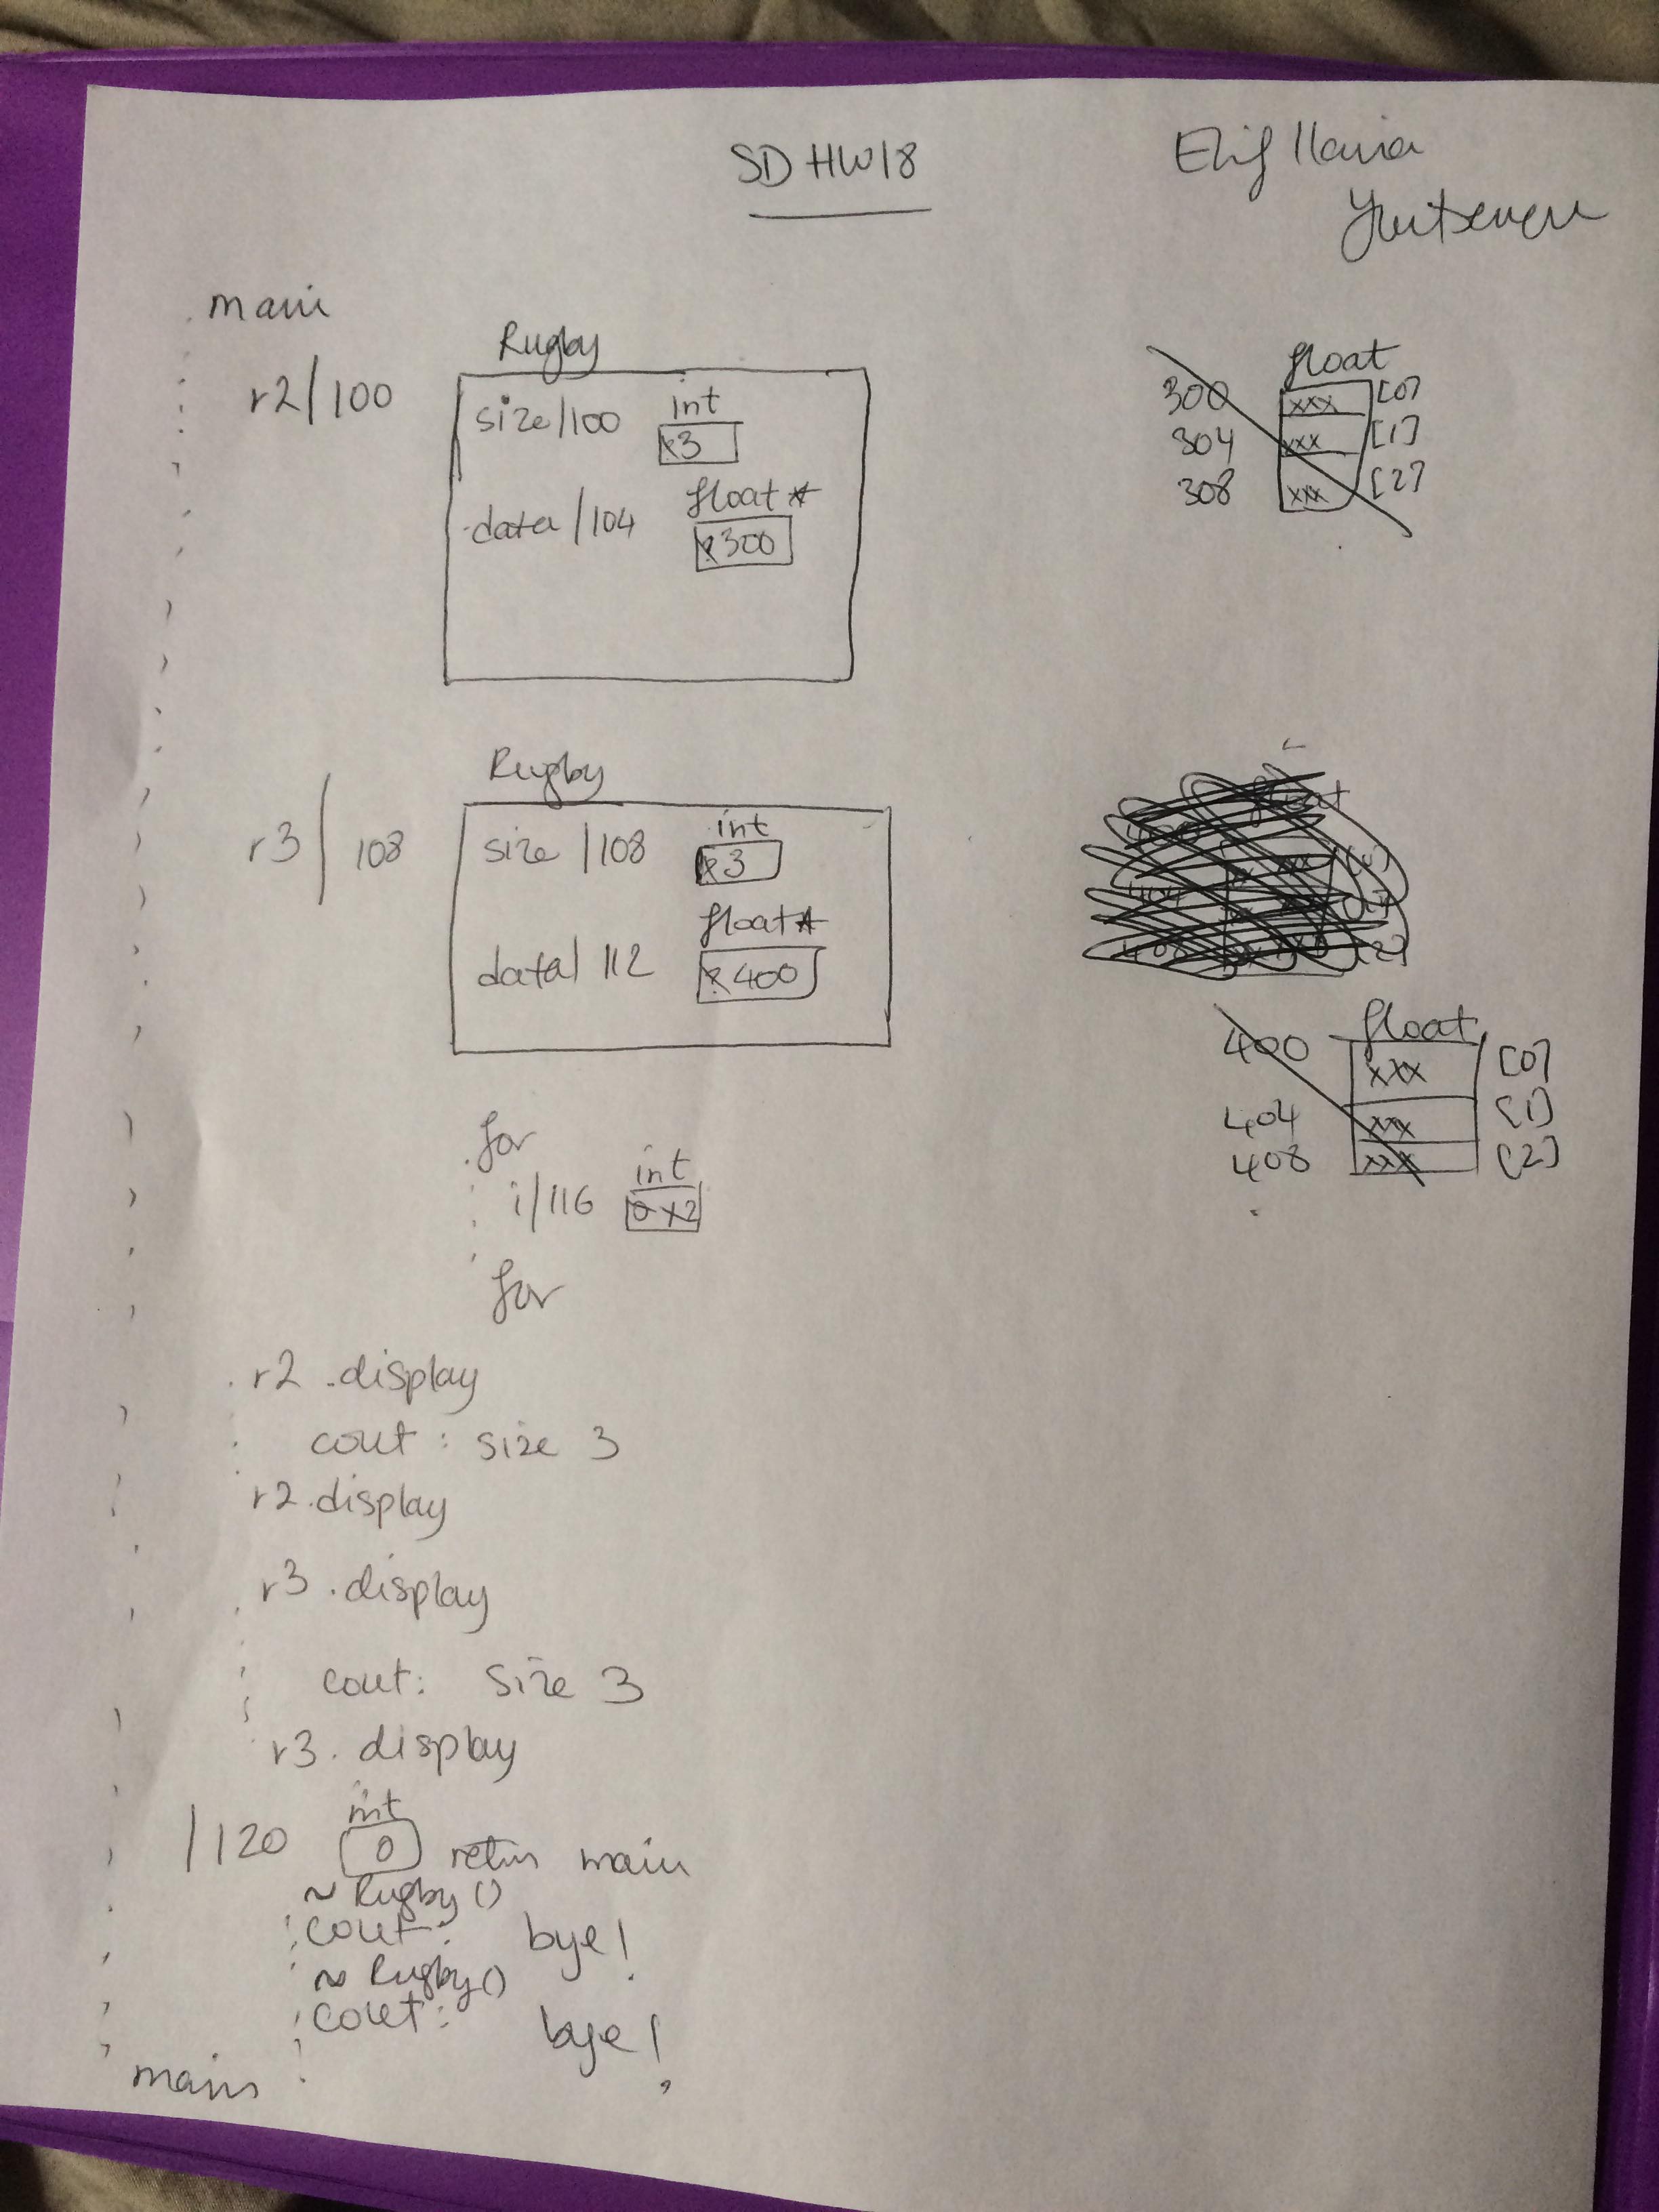 SD HW18
Elif Ilana
main
Rugby
r2/100
size/100 int
x3
data/104 float*
x300
float
300 xxx [0]
304 xxx [1]
308 xxx [2]
Rugby
r3/108
size/108 int
x3
data/112 float*
x400
float
400 xxx [0]
404 xxx [1]
408 xxx [2]
for
i/116 int
0 1 2
for
r2.display
cout: size 3
r2.display
r3.display
cout: size 3
r3.display
/120 int
0 return main
~Rugby()
cout: bye!
~Rugby()
cout: bye!
main